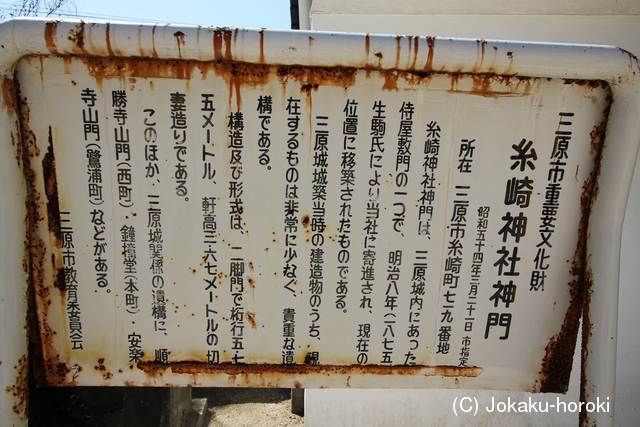 三原市重要文化財
糸崎神社神門
昭和五十四年三月二十一日 市指定
所在 三原市糸崎町七二九番地
糸崎神社神門は、三原城内にあった
侍屋敷門の一つで、明治八年(一八七五
生駒氏により当社に寄進され、現在の
位置に移築されたものである。
三原城城築当時の建造物のうち、現
在するものは非常に少なく、貴重な遺
構である。
構造及び形式は、二脚門で桁行五・七
五メートル、軒高三・六七メートルの切
妻造りである。
このほか、三原城関係の遺構に、順
勝寺山門(西町)・鐘撞堂(本町)・安楽
寺山門(鷺浦町)などがある。
三原市教育委員会
(C) Jokaku-horoki